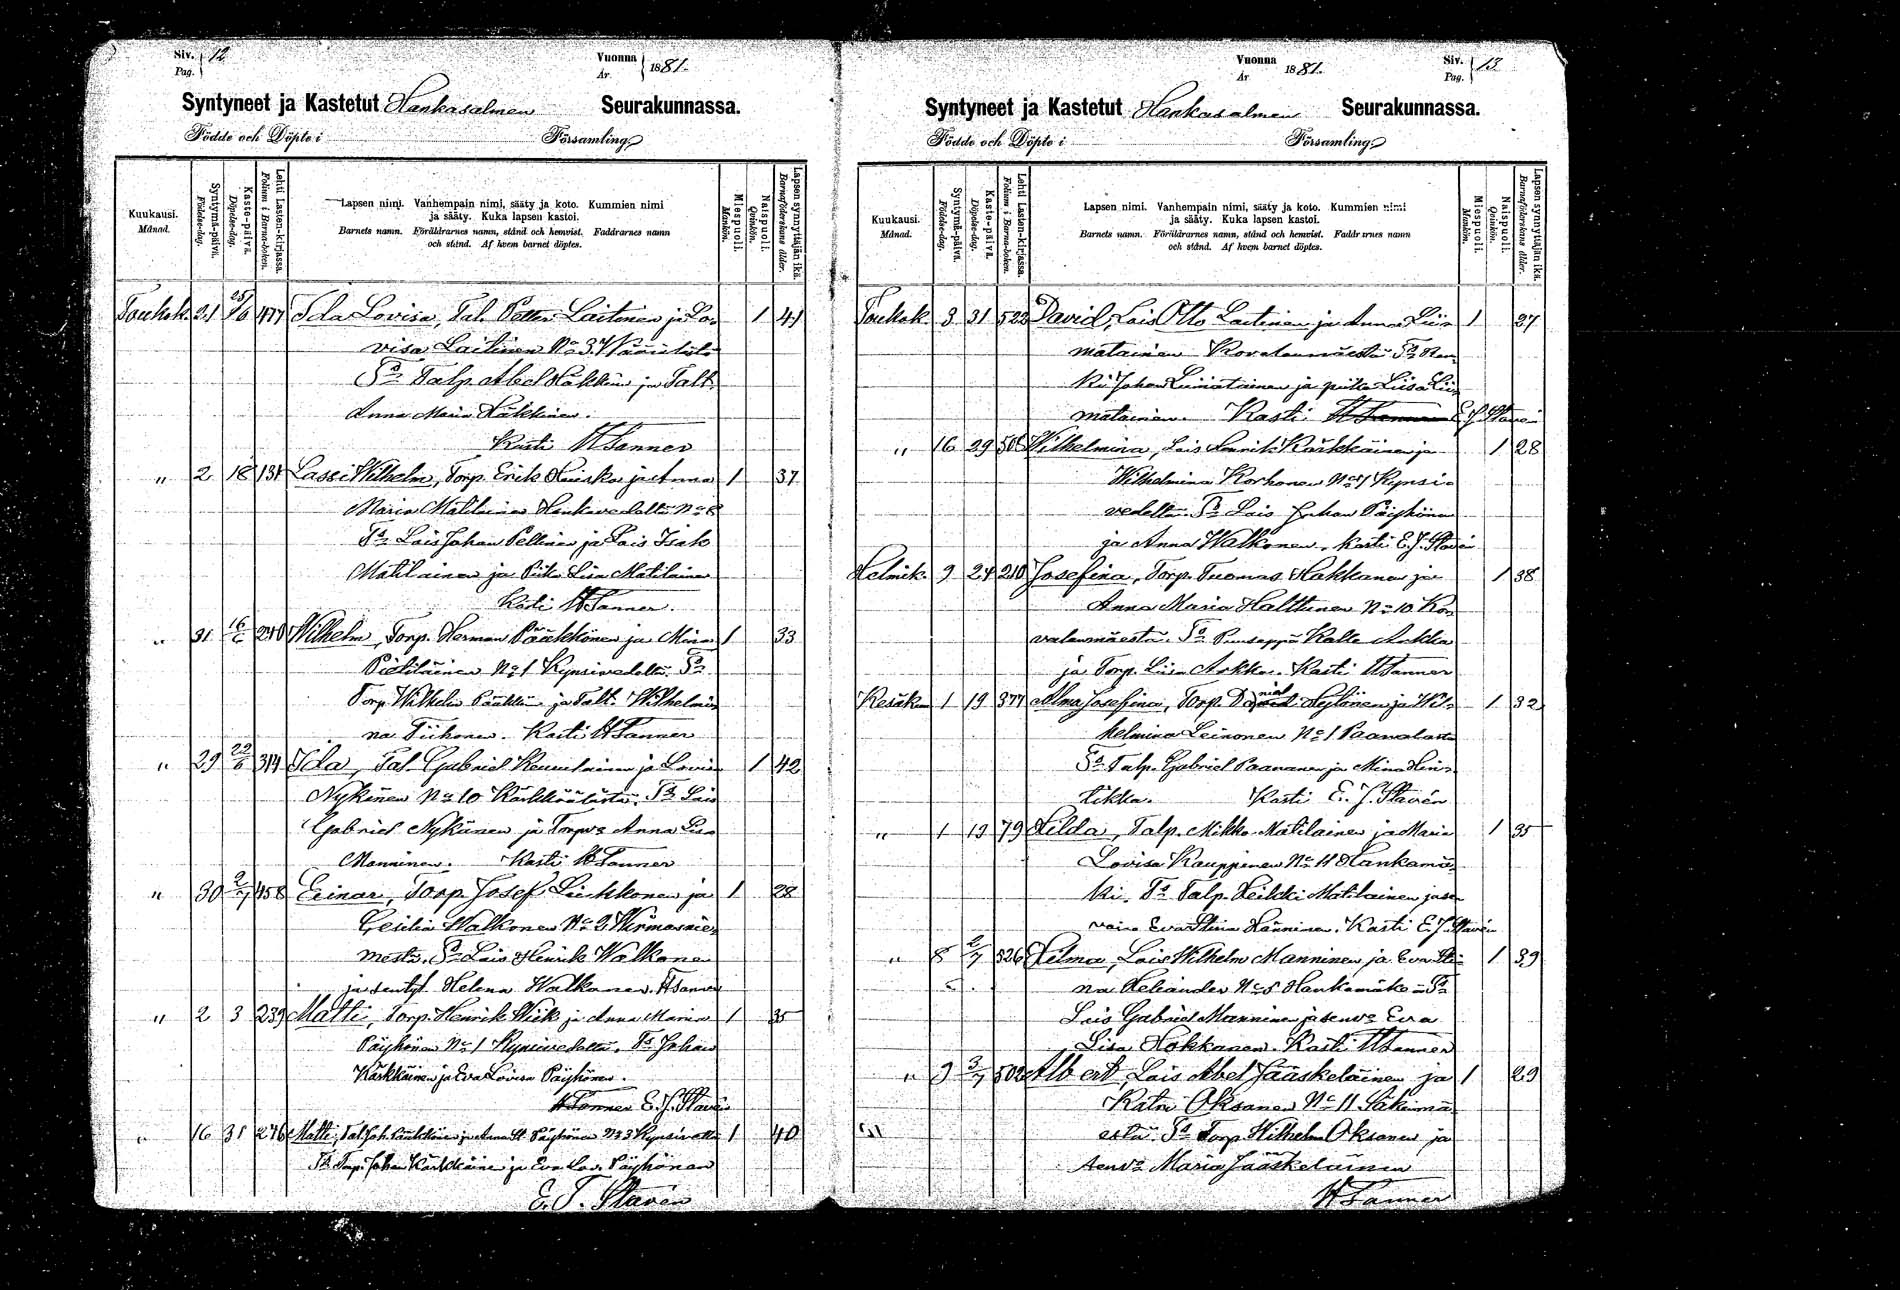 Siv. 12
Pag.
Vuonna 1881.
År
Syntyneet ja Kastetut Hankasalmen Seurakunnassa.
Födde och Döpte i Församling
Kuukausi.
Månad.
Syntymä-päivä.
Födelse-dag.
Kaste-päivä.
Döpelse-dag.
Lehti Lasten-kirjassa.
Folium i Barna-boken.
Lapsen nimi. Vanhempain nimi, sääty ja koto. Kummien nimi
ja sääty. Kuka lapsen kastoi.
Barnets namn. Föräldrarnes namn, stånd och hemvist. Faddrarnes namn
och stånd. Af hvem barnet döptes.
Miespuoli.
Mankön.
Naispuoli.
Qvinkön.
Lapsen synnyttäjän ikä.
Barnaföderskans ålder.
Toukok. 21 25/6 477 Ida Lovisa, Tal. Petter Laitinen ja Lo- 1 41
visa Laitinen No 34
Ts Talp. Abel Häkkinen ja Talt.
Anna Maria Häkkinen.
Kasti W Tanner
" 2 18 131 Lassi Wilhelm, Torp. Erik Hauska ja Anna 1 37
Maria Matilainen Hankavedelta No 8
Ts Lois Johan Pellinen ja Lois Isak
Matilainen ja Piika Lisa Matilainen
Kasti W Tanner.
" 31 16/6 240 Wilhelm, Torp. Herman Pääkkönen ja Mina 1 33
Pietiläinen No 1 Kynsivedeltä. Ts
Torp. Wilhelm Pääkkönen ja Talt. Wilhelmi-
na Tiihonen. Kasti W Tanner
" 29 22/6 314 Ida, Tal. Gabriel Kauulainen ja Lovisa 1 42
Nykänen No 10 Kärkkäälästä. Ts Lois
Gabriel Nykänen ja Torpvo Anna Lisa
Manninen. Kasti W Tanner
" 30 2/7 458 Einar, Torp. Josef Liekkonen ja 1 28
Cesilia Walkonen No 2 Wärmasnie-
mestä. Ts Lois Henrik Walkonen
ja Helena Walkonen. W Tanner
" 2 3 239 Matti, Torp. Henrik Wiik ja Anna Maria 1 35
Päyhönen No 1 Kynsivedeltä. Ts Johan
Kärkkäinen ja Eva Lovisa Päyhönen.
W Tanner E. J. Stavén
" 16 31 246 Matti, Tal. Joh. Pääkkönen ja Anna St. Päyhönen No 3 Kynsivedeltä 1 40
Ts Torp. Johan Kärkkäinen ja Eva Lov. Päyhönen
E. J. Stavén
Vuonna 1881.
År
Siv. 13
Pag.
Syntyneet ja Kastetut Hankasalmen Seurakunnassa.
Födde och Döpte i Församling
Kuukausi.
Månad.
Syntymä-päivä.
Födelse-dag.
Kaste-päivä.
Döpelse-dag.
Lehti Lasten-kirjassa.
Folium i Barna-boken.
Lapsen nimi. Vanhempain nimi, sääty ja koto. Kummien nimi
ja sääty. Kuka lapsen kastoi.
Barnets namn. Föräldrarnes namn, stånd och hemvist. Faddrarnes namn
och stånd. Af hvem barnet döptes.
Miespuoli.
Mankön.
Naispuoli.
Qvinkön.
Lapsen synnyttäjän ikä.
Barnaföderskans ålder.
Toukok. 3 31 522 David, Lois Otto Laitinen ja Anna Lii- 1 27
matainen Kovalanmäestä Ts Ren-
ki Johan Liimatainen ja piika Liisa Lii-
matainen. Kasti W Tanner E. J. Stavén
" 16 29 506 Wilhelmina, Lois Henrik Kärkkäinen ja 1 28
Wilhelmina Korhonen No 1 Kynsi-
vedeltä. Ts Lois Johan Päyhönen
ja Anna Walkonen. Kasti E. J. Stavén
Helmik. 9 24 210 Josefina, Torp. Tuomas Hakkanen ja 1 38
Anna Maria Halttunen No 10 Ko-
valanmäestä. Ts Puuseppä Kalle Arkko
ja Torp. Liisa Arkko. Kasti W Tanner
Kesäkuu 1 19 377 Alma Josefina, Torp. Daniel Heytönen ja Wil- 1 32
helmina Leinonen No 1 Paanalasta
Ts Talp. Gabriel Paananen ja Mina Hin-
tikka. Kasti E. J. Stavén
" 1 19 79 Hilda, Talp. Mikko Matilainen ja Maria 1 35
Lovisa Kauppinen No 11 Hankamä-
ki. Ts Talp. Heikki Matilainen ja sen
vaimo Eva Stina Hänninen. Kasti E. J. Stavén
" 8 2/7 526 Helma, Lois Wilhelm Manninen ja Eva Sti- 1 39
na Heliander No 5 Hankamäko Ts
Lois Gabriel Manninen ja senvo Eva
Lisa Hokkanen. Kasti W Tanner
" 9 3/7 502 Albert, Lois Abel Jääskeläinen ja 1 29
Katri Oksanen No 11 Säkinmä-
estä. Ts Torp. Wilhelm Oksanen ja
senvo Maria Jääskeläinen
W Tanner